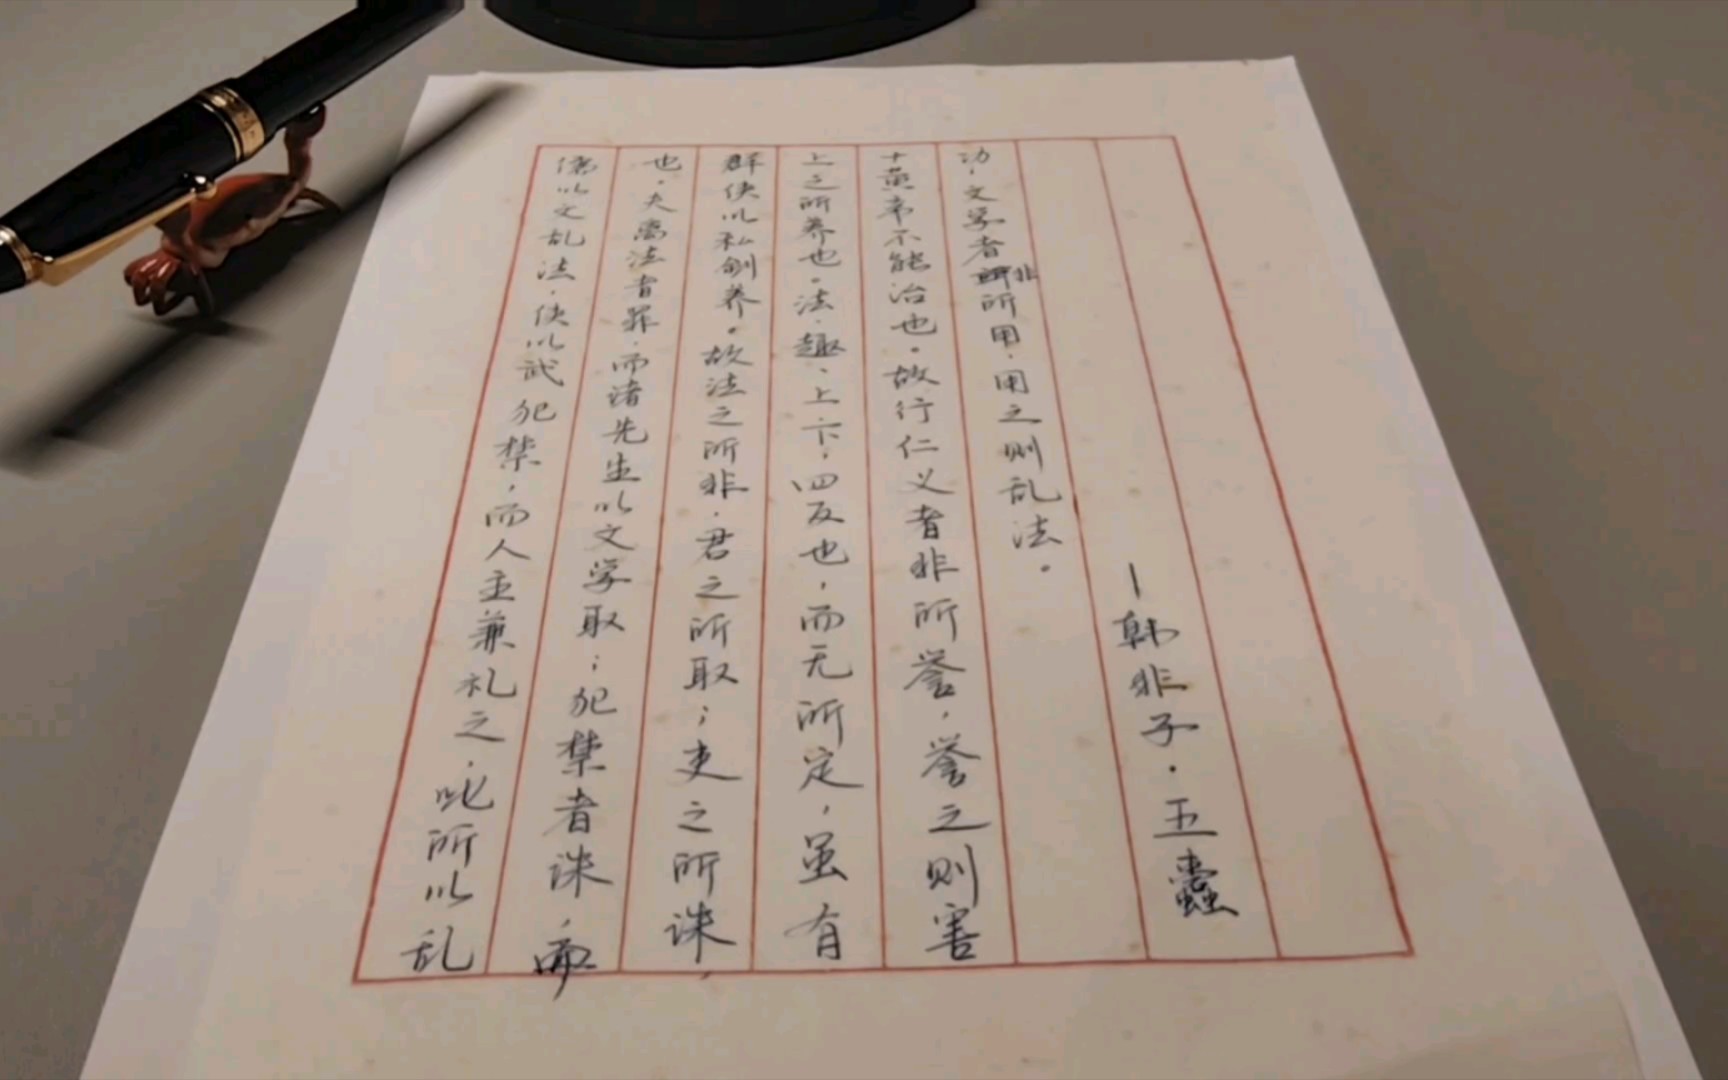 儒以文乱法，侠以武犯禁，而人主兼礼之，此所以乱
也。夫离法者罪，而诸先生以文学取；犯禁者诛，而
群侠以私剑养。故法之所非，君之所取；吏之所诛，
上之所养也。法、趣、上、下，四反也，而无所定，虽有
十黄帝不能治也。故行仁义者非所誉，誉之则害
功，文学者非所用，用之则乱法。
—韩非子·五蠹